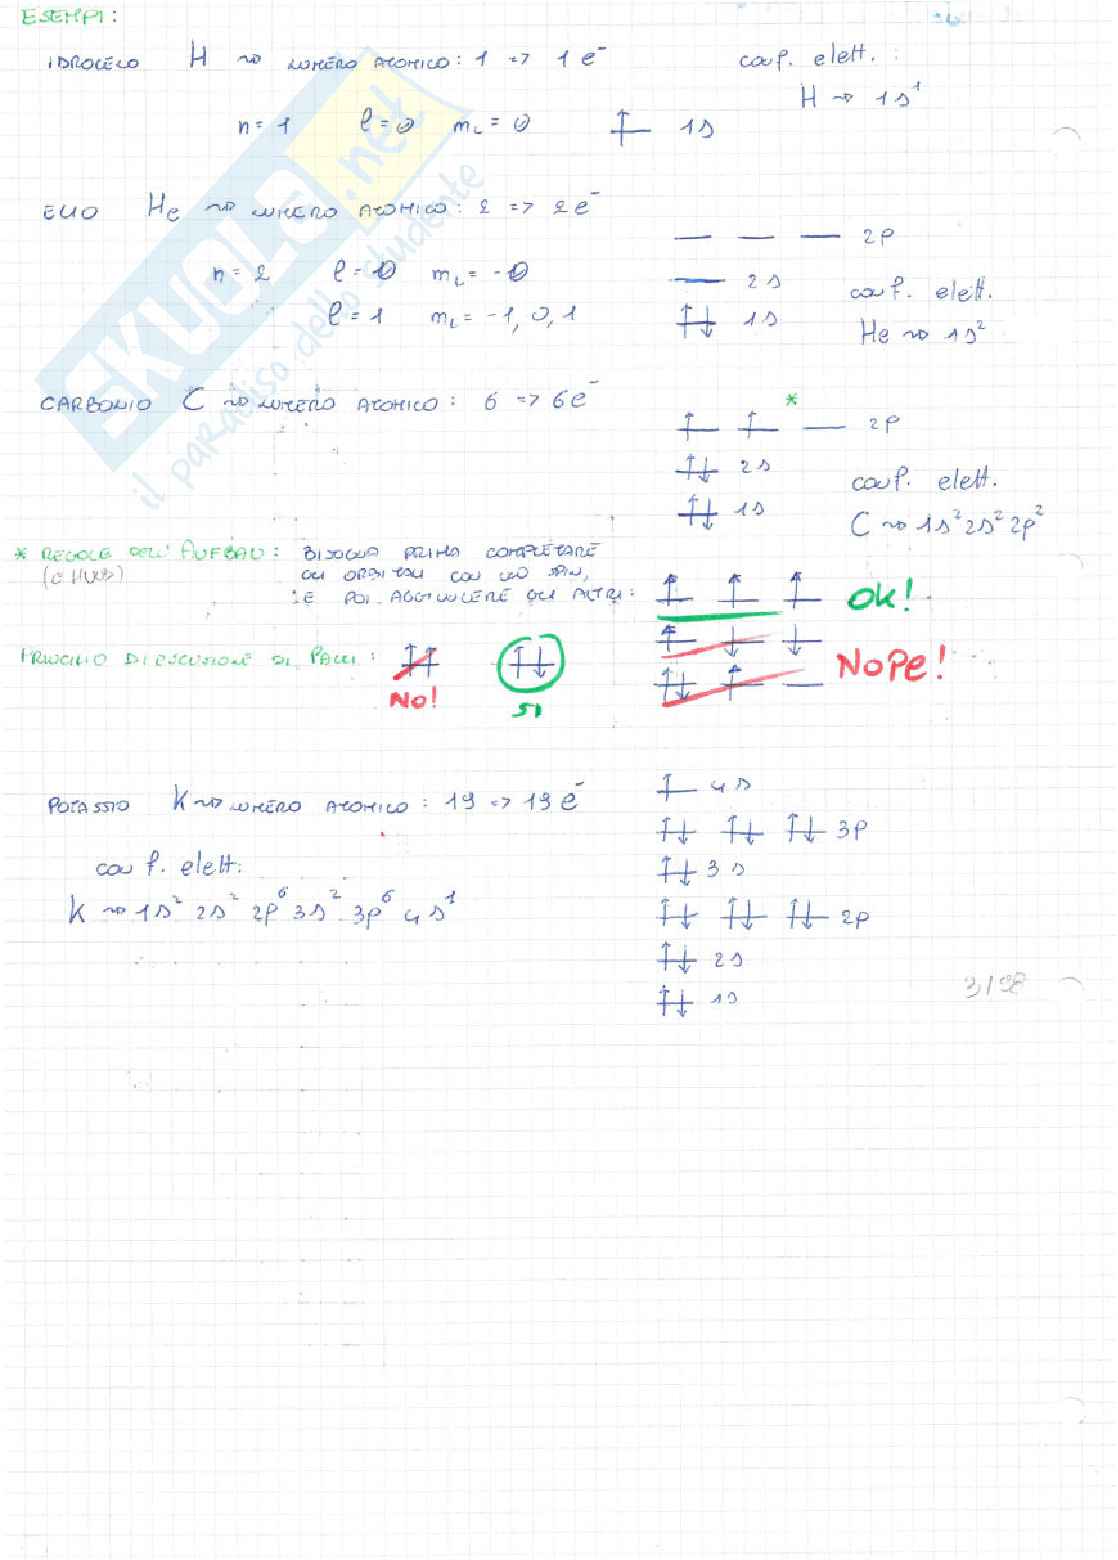 ESEMPI:
IDROGENO H ⇝ NUMERO ATOMICO: 1 => 1e⁻ conf. elett.:
H ⇝ 1s¹
n=1 l=0 mL=0 1s
ELIO He ⇝ NUMERO ATOMICO: 2 => 2e⁻
2p
n=2 l=0 mL=-0 2s
conf. elett.
l=1 mL=-1, 0, 1 1s
He ⇝ 1s²
CARBONIO C ⇝ NUMERO ATOMICO: 6 => 6e⁻
* 2p
2s
conf. elett.
1s
C ⇝ 1s² 2s² 2p²
* REGOLE DELL'AUFBAU: BISOGNA PRIMA COMPLETARE
(O HUND) GLI ORBITALI CON UNO SPIN,
E POI AGGIUNGERE GLI ALTRI: OK!
PRINCIPIO DI ESCLUSIONE DI PAULI: NOPE!
NO! SI
POTASSIO K ⇝ NUMERO ATOMICO: 19 => 19e⁻ 4s
3p
conf. elett. 3s
K ⇝ 1s² 2s² 2p⁶ 3s² 3p⁶ 4s¹ 2p
2s
1s
3/98
SKUOLA.net
il paradiso dello studente